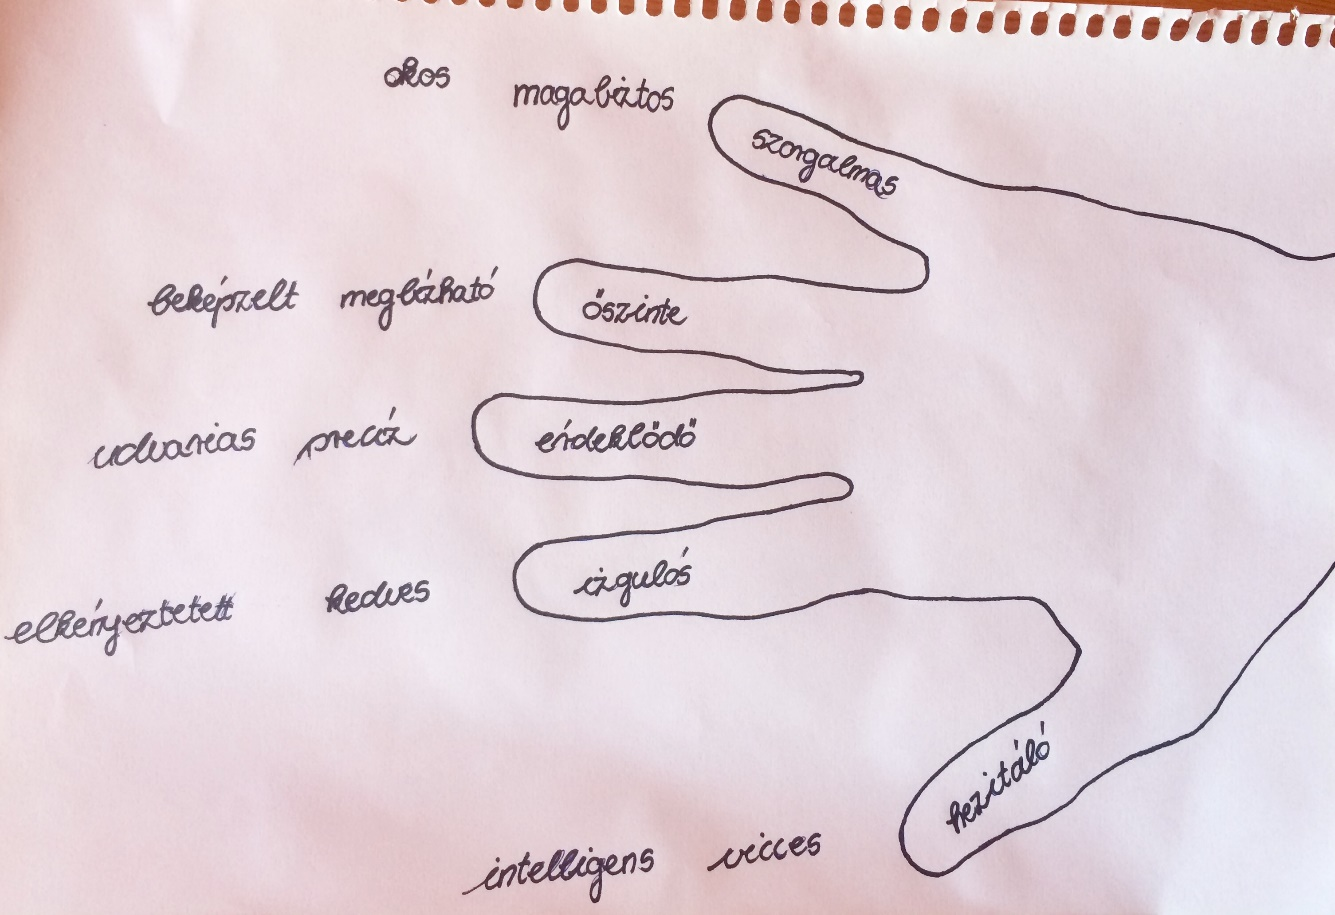 okos magabiztos szorgalmas
beképzelt megbízható őszinte
udvarias precíz érdeklődő
elkényeztetett kedves izgulós
hezitáló
intelligens vicces